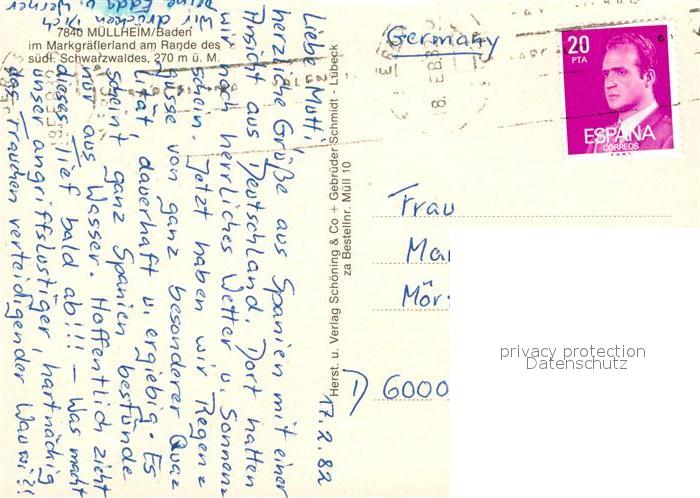 7840 MÜLLHEIM/Baden
im Markgräflerland am Rande des
südl. Schwarzwaldes, 270 m ü. M.
17.2.82
Liebe Mutti,
herzliche Grüße aus Spanien mit einer
Ansicht aus Deutschland. Dort hatten
wir noch herrliches Wetter u. Sonnen=
schein. Jetzt haben wir Regen=
güsse von ganz besonderer Qua=
lität, dauerhaft u. ergiebig. Es
scheint, ganz Spanien bestünde
nur aus Wasser. Hoffentlich zieht
dieses Tief bald ab!!! – Was macht
unser angriffslustiger, hartnäckig
das Frauchen verteidigender Wauwi?!
Wir drücken Dich
Deine Edda u. Werner
Herst. u. Verlag Schöning & Co + Gebrüder Schmidt - Lübeck
za Bestellnr. Müll 10
Germany
18. FEB.
20
PTA
ESPAÑA
CORREOS
Frau
Ma
Mör
D 6000
privacy protection
Datenschutz